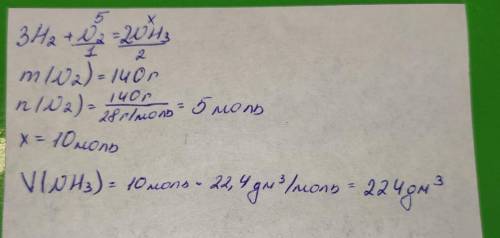 5 x
3H₂ + N₂ = 2NH₃
1 2
m(N₂) = 140г
n(N₂) = 140г / 28г/моль = 5 моль
x = 10 моль
V(NH₃) = 10 моль · 22,4 дм³/моль = 224 дм³